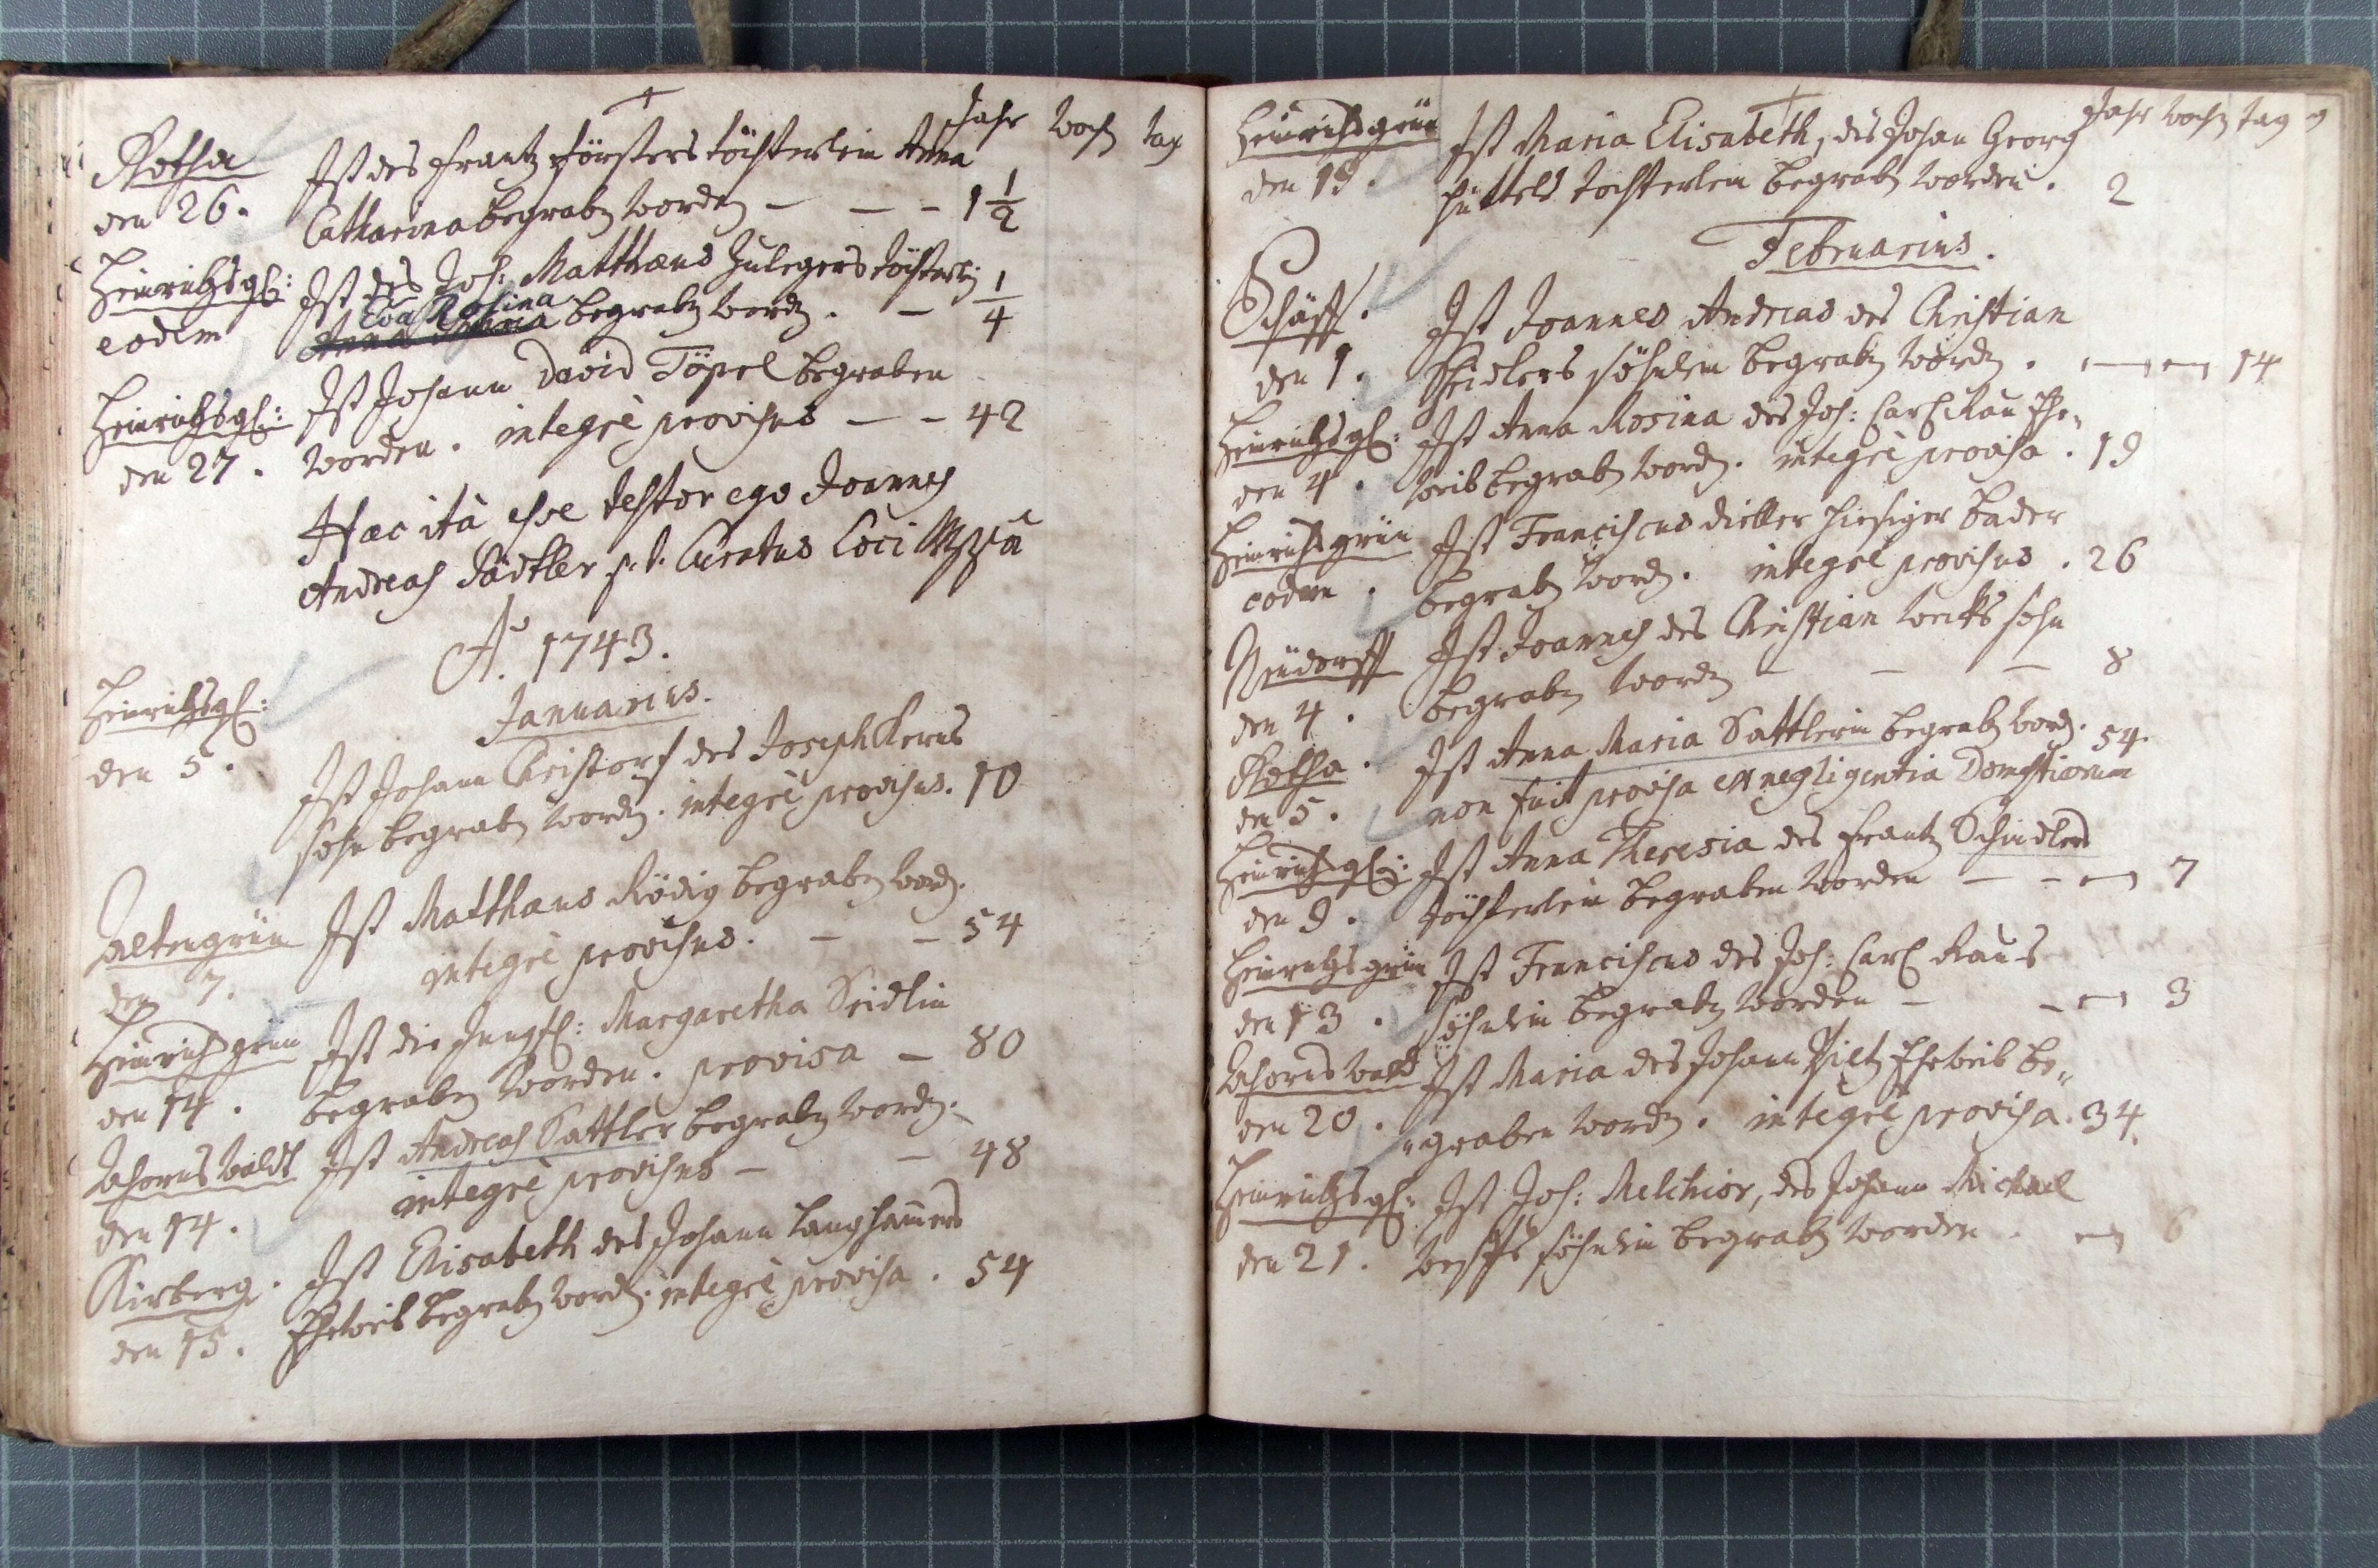 Jahr Woch tag
Rotha Ist des Frantz Försters töchterlein Anna
den 26. Catharina begraben worden — — — 1 1/2
Heinrichsgr: Ist des Joh: Matthæus Zulegers töchterl:
Eva Rosina
eodem begraben worden. — 1/4
Heinrichsgr: Ist Johann David Töpel begraben
den 27. worden. integrè provisus — — 42
Hæc ità esse testor ego Joannes
Andreas Sadtler p.t. Curatus Loci
Aö. 1743.
Januarius.
Heinrichsgr:
den 5. Ist Johann Christorf des Joseph Kerns
sohn begraben worden. integrè provisus. 10
Waltengrün Ist Matthæus Rödig begraben word.
den 7. integrè provisus. — — 54
Heinrichsgrün Ist die Jungfr: Margaretha Seidlin
den 14. begraben worden. provisa — 80
Ahornswaldt Ist Andreas Sattler begraben worden.
den 14. integrè provisus — — 48
Kirberg. Ist Elisabeth des Johann Langhamers
den 15. Eheweib begraben word. integrè provisa. 54
Jahr Woch tag
Heinrichsgrün Ist Maria Elisabeth, des Johan Georg
den 19. Hüttels tochterlein begraben worden. 2
Februarius.
Schäff. Ist Joannes Andreas des Christian
den 1. söhnlein begraben worden. — — 14
Heinrichsgr: Ist Anna Rosina des Joh: Carl Rau Ehe„
den 4. weib begraben worden. integrè provisa. 19
Heinrichsgrün Ist Franciscus dietler hiesiger bader
eodem. begraben word. integrè provisus. 26
Neüdorff Ist Joannes des Christian sohn
den 4. begraben worden — — — 8
Rotha. Ist Anna Maria Sattlerin begraben word. 54.
den 5. non fuit provisa ex negligentia Domesticorum
Heinrichsgr: Ist Anna Theresia des Frantz Schindlers
den 9. töchterlein begraben worden — — — 7
Heinrichsgrün Ist Franciscus des Joh: Carl Rau-s
den 13. söhnlein begraben worden — — — 3
Ahornswald Ist Maria des Johann Piltz Eheweib be„
den 20. „graben worden. integrè provisa. 34.
Heinrichsgr: Ist Joh: Melchior, des Johann Michael
den 21. söhnlein begraben worden. — 6